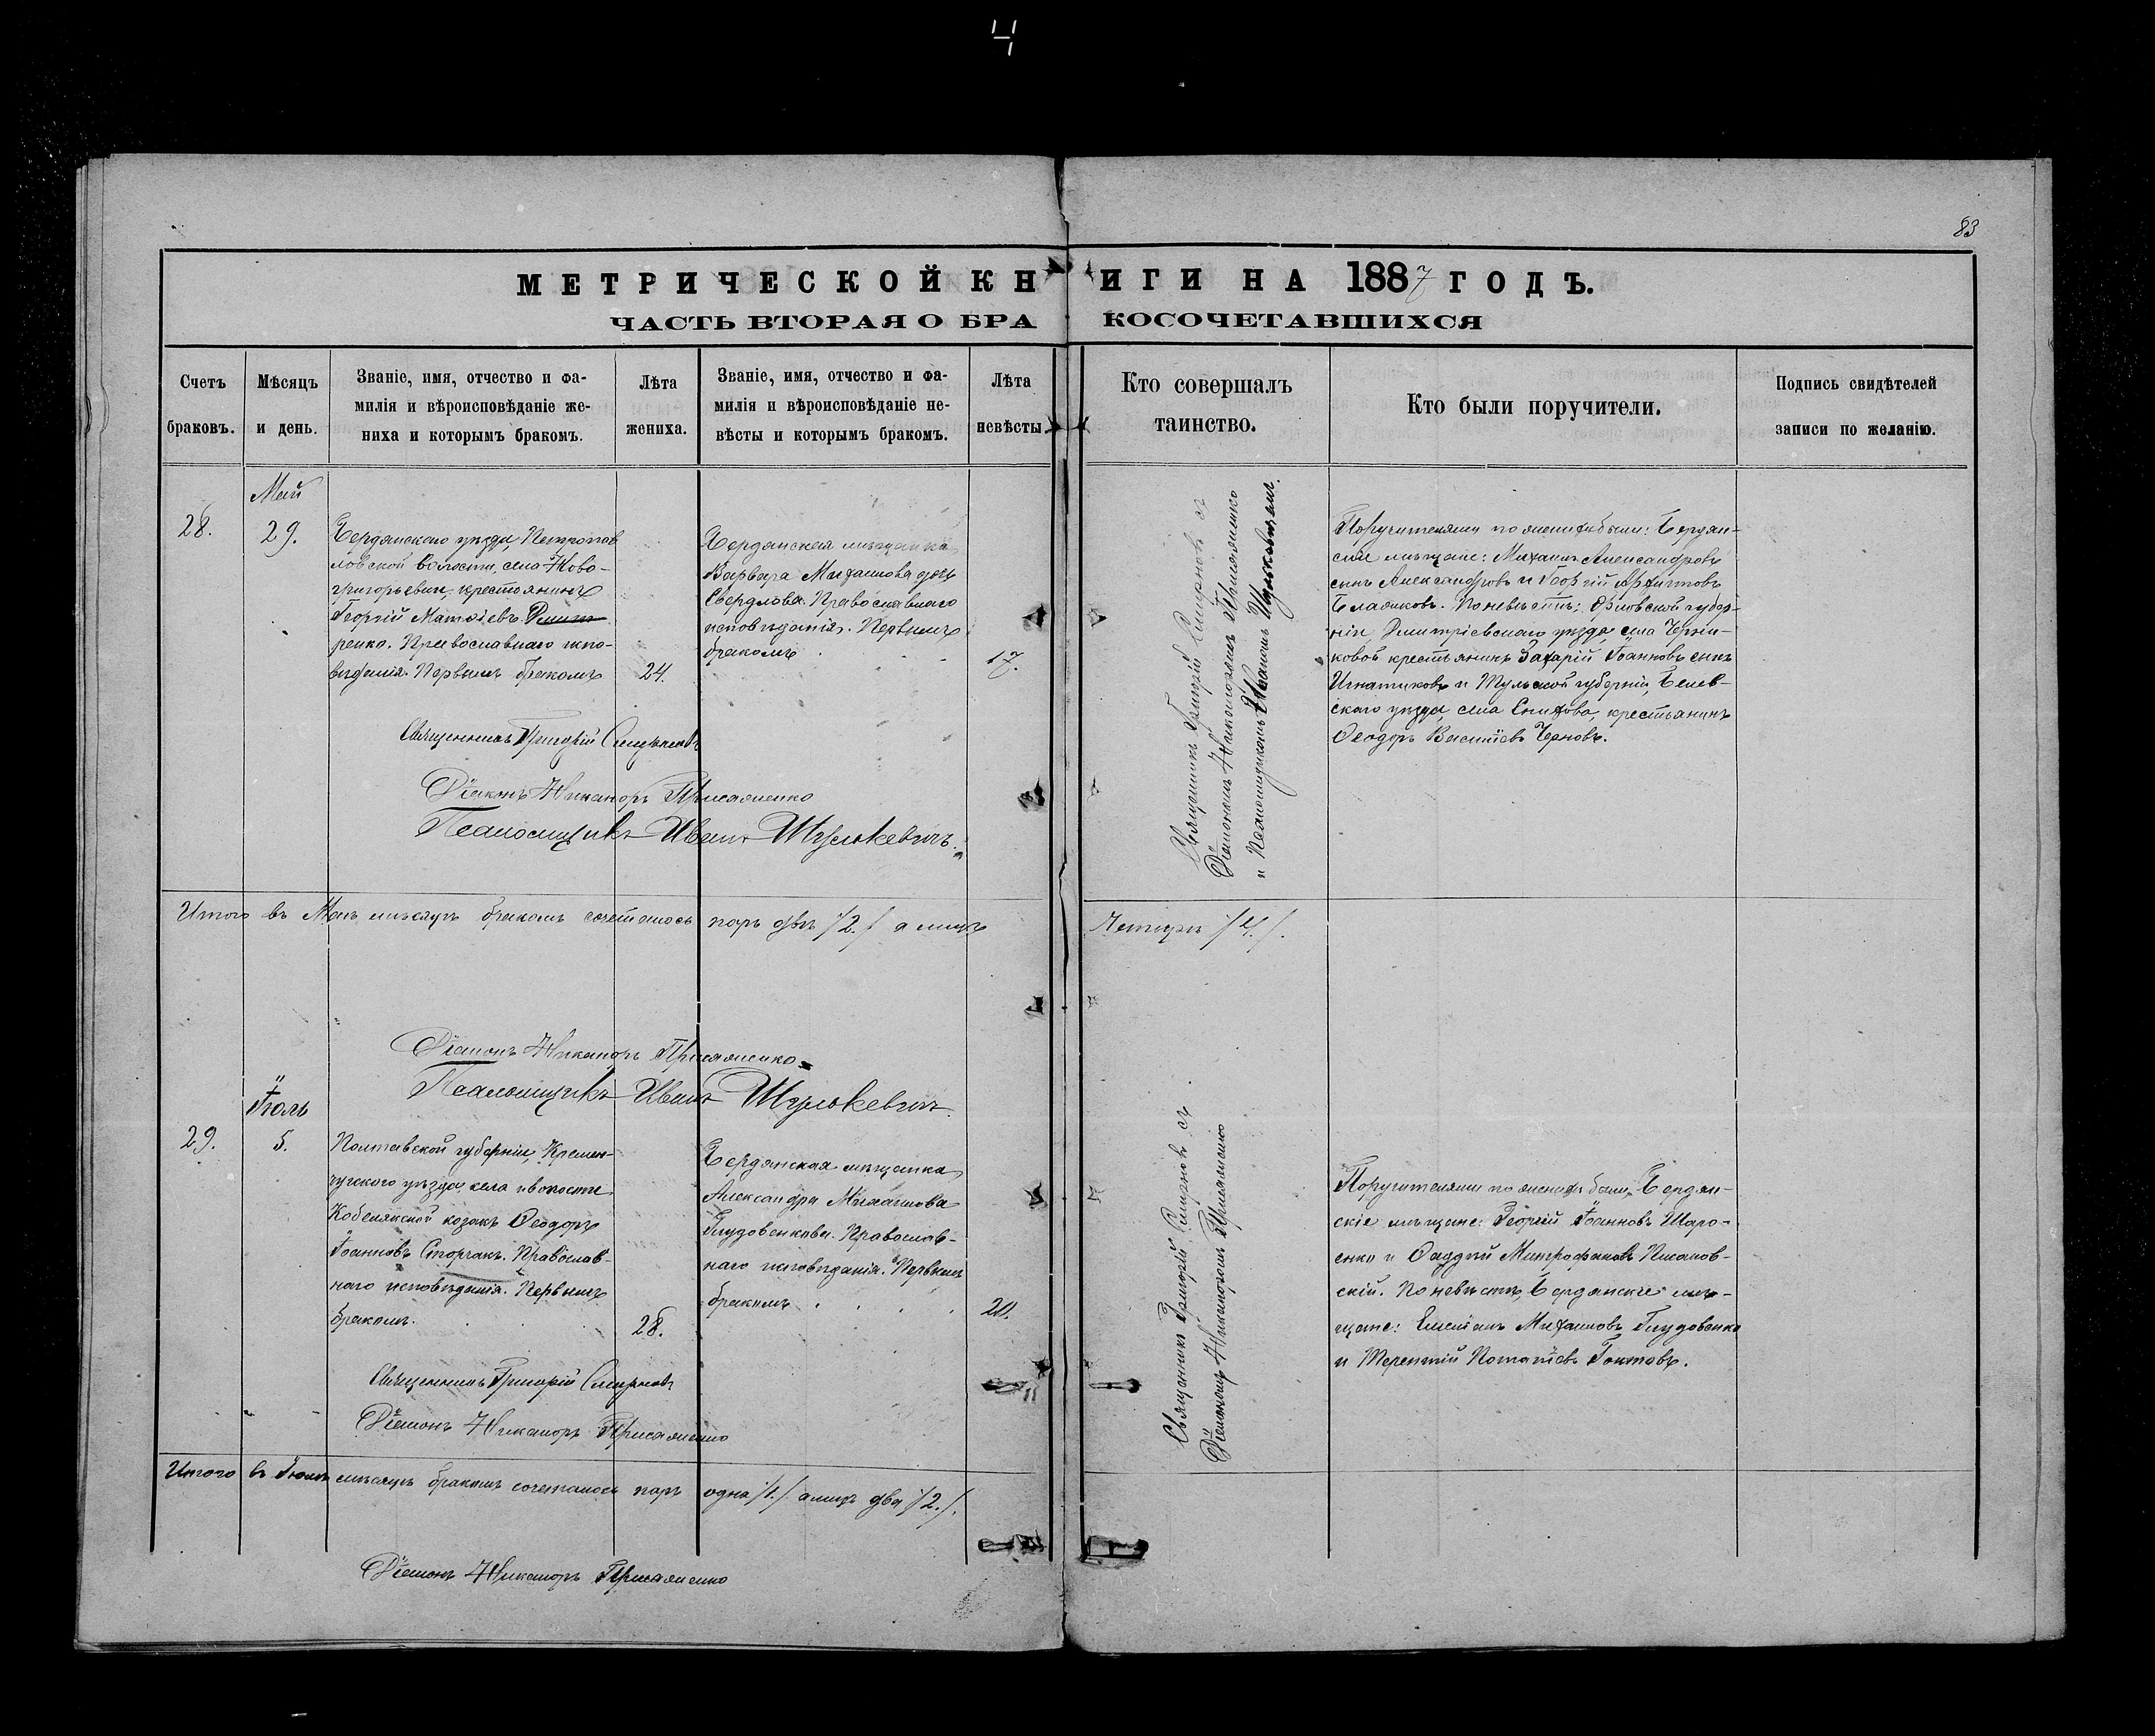 83
МЕТРИЧЕСКОЙ КНИГИ НА 1887 ГОДЪ.
ЧАСТЬ ВТОРАЯ О БРАКОСОЧЕТАВШИХСЯ
Счетъ
браковъ.
Мѣсяцъ
и день.
Званіе, имя, отчество и фа-
милія и вѣроисповѣданіе же-
ниха и которымъ бракомъ.
Лѣта
жениха.
Званіе, имя, отчество и фа-
милія и вѣроисповѣданіе не-
вѣсты и которымъ бракомъ.
Лѣта
невѣсты.
Кто совершалъ
таинство.
Кто были поручители.
Подпись свидѣтелей
записи по желанію.
28.
Май
29.
Бердянскаго уѣзда, Петропав
ловской волости, села Ново-
григорьевки, крестьянинъ
Георгій Матѳіевъ
ренко. Православнаго испо-
вѣданія. Первымъ бракомъ
24.
Бердянская мѣщанка
Варвара Михаилова дочь
Свердлова. Православнаго
исповѣданія. Первымъ
бракомъ
17.
Священникъ Григорій Смирновъ съ
Діакономъ Никаноромъ Присяженко
и Псаломщикомъ Иваномъ
Поручителями по женихѣ были: Бердян-
скіе мѣщане: Михаилъ Александровъ
сынъ Александровъ и Георгій
Поневѣстѣ: Орловской губер-
ніи, Дмитріевскаго уѣзда, села
ковой крестьянинъ Захарій Іоанновъ сынъ
Игнатиковъ и Тульской губерніи, Белев-
скаго уѣзда, села крестьянинъ
Ѳеодоръ Василіевъ Черновъ.
Священникъ Григорій Смирновъ
Діаконъ Никаноръ Присяженко
Псаломщикъ Иванъ
Итого въ Маѣ мѣсяцѣ бракомъ сочеталось паръ двѣ /2./ а лицъ
Четыре /4./.
Діаконъ Никаноръ Присяженко
Псаломщикъ Иванъ
29.
Іюль
5.
Полтавской губерніи, Кремен-
чугского уѣзда, села и волости
Кобелякской козакъ Ѳеодоръ
Іоанновъ Сторчакъ. Православ-
наго исповѣданія. Первымъ
бракомъ.
28.
Бердянская мѣщанка
Александра Михаилова
Глудовенкова. Православ-
наго исповѣданія. Первымъ
бракомъ
20.
Священникъ Григорій Смирновъ съ
Діакономъ Никаноромъ Присяженко
Поручителями по женихѣ были: Бердян-
скіе мѣщане: Георгій Іоанновъ Шаро-
енко и Ѳаддей Митрофановъ
скій. Поневѣстѣ, Бердянскіе мѣ-
щане: Михаиловъ Глудовенко
и Терентій Потапіевъ
Священникъ Григорій Смирновъ
Діаконъ Никаноръ Присяженко
Итого въ Іюлѣ мѣсяцѣ бракомъ сочеталось паръ одна /1./ а лицъ два /2./.
Діаконъ Никаноръ Присяженко